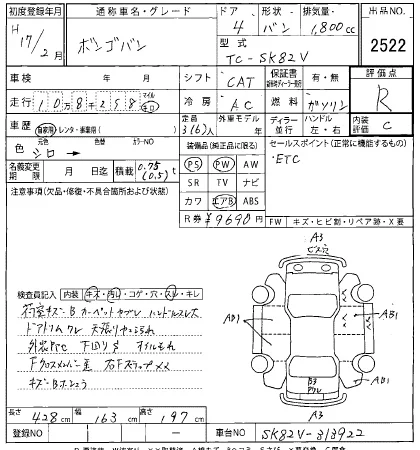 初度登録年月 通称車名・グレード ドア 形状 排気量 出品NO.
H17/2月 ボンゴバン 4 バン 1,800cc 2522
型式 TC-SK82V
車検 年 月 シフト CAT 保証書 有・無 評価点
走行 10万8千258 マイル キロ 冷房 AC 燃料 ガソリン R
車歴 自家用・レンタ・事業用( ) 定員 3(6)人 外車モデル 年 ディーラー 並行 ハンドル 左・右 内装評価 C
色 元色 シロ → 色替 カラーNO 装備品(純正品に限る) セールスポイント(正常に機能するもの)
PS PW AW ・ETC
名義変更期限 月 日迄 積載 0.75(0.5)t SR TV ナビ
注意事項(欠品・修復・不具合箇所および状態) カワ エアB ABS
R券 ¥9690円 FW キズ・ヒビ割・リペア跡・X要
A3
検査員記入 内装 キズ・汚れ・コゲ・穴・スレ・キレ
AB1 AB1
荷室キズB カーペットヤブレ ハンドルスレ大
ドアトリムワレ 天張リヤヨゴレ
外装PtC 下回りS オイルモレ
AB1
B3
A3
長さ 428cm 幅 163cm 高さ 197cm
登録NO 車台NO SK82V-313922